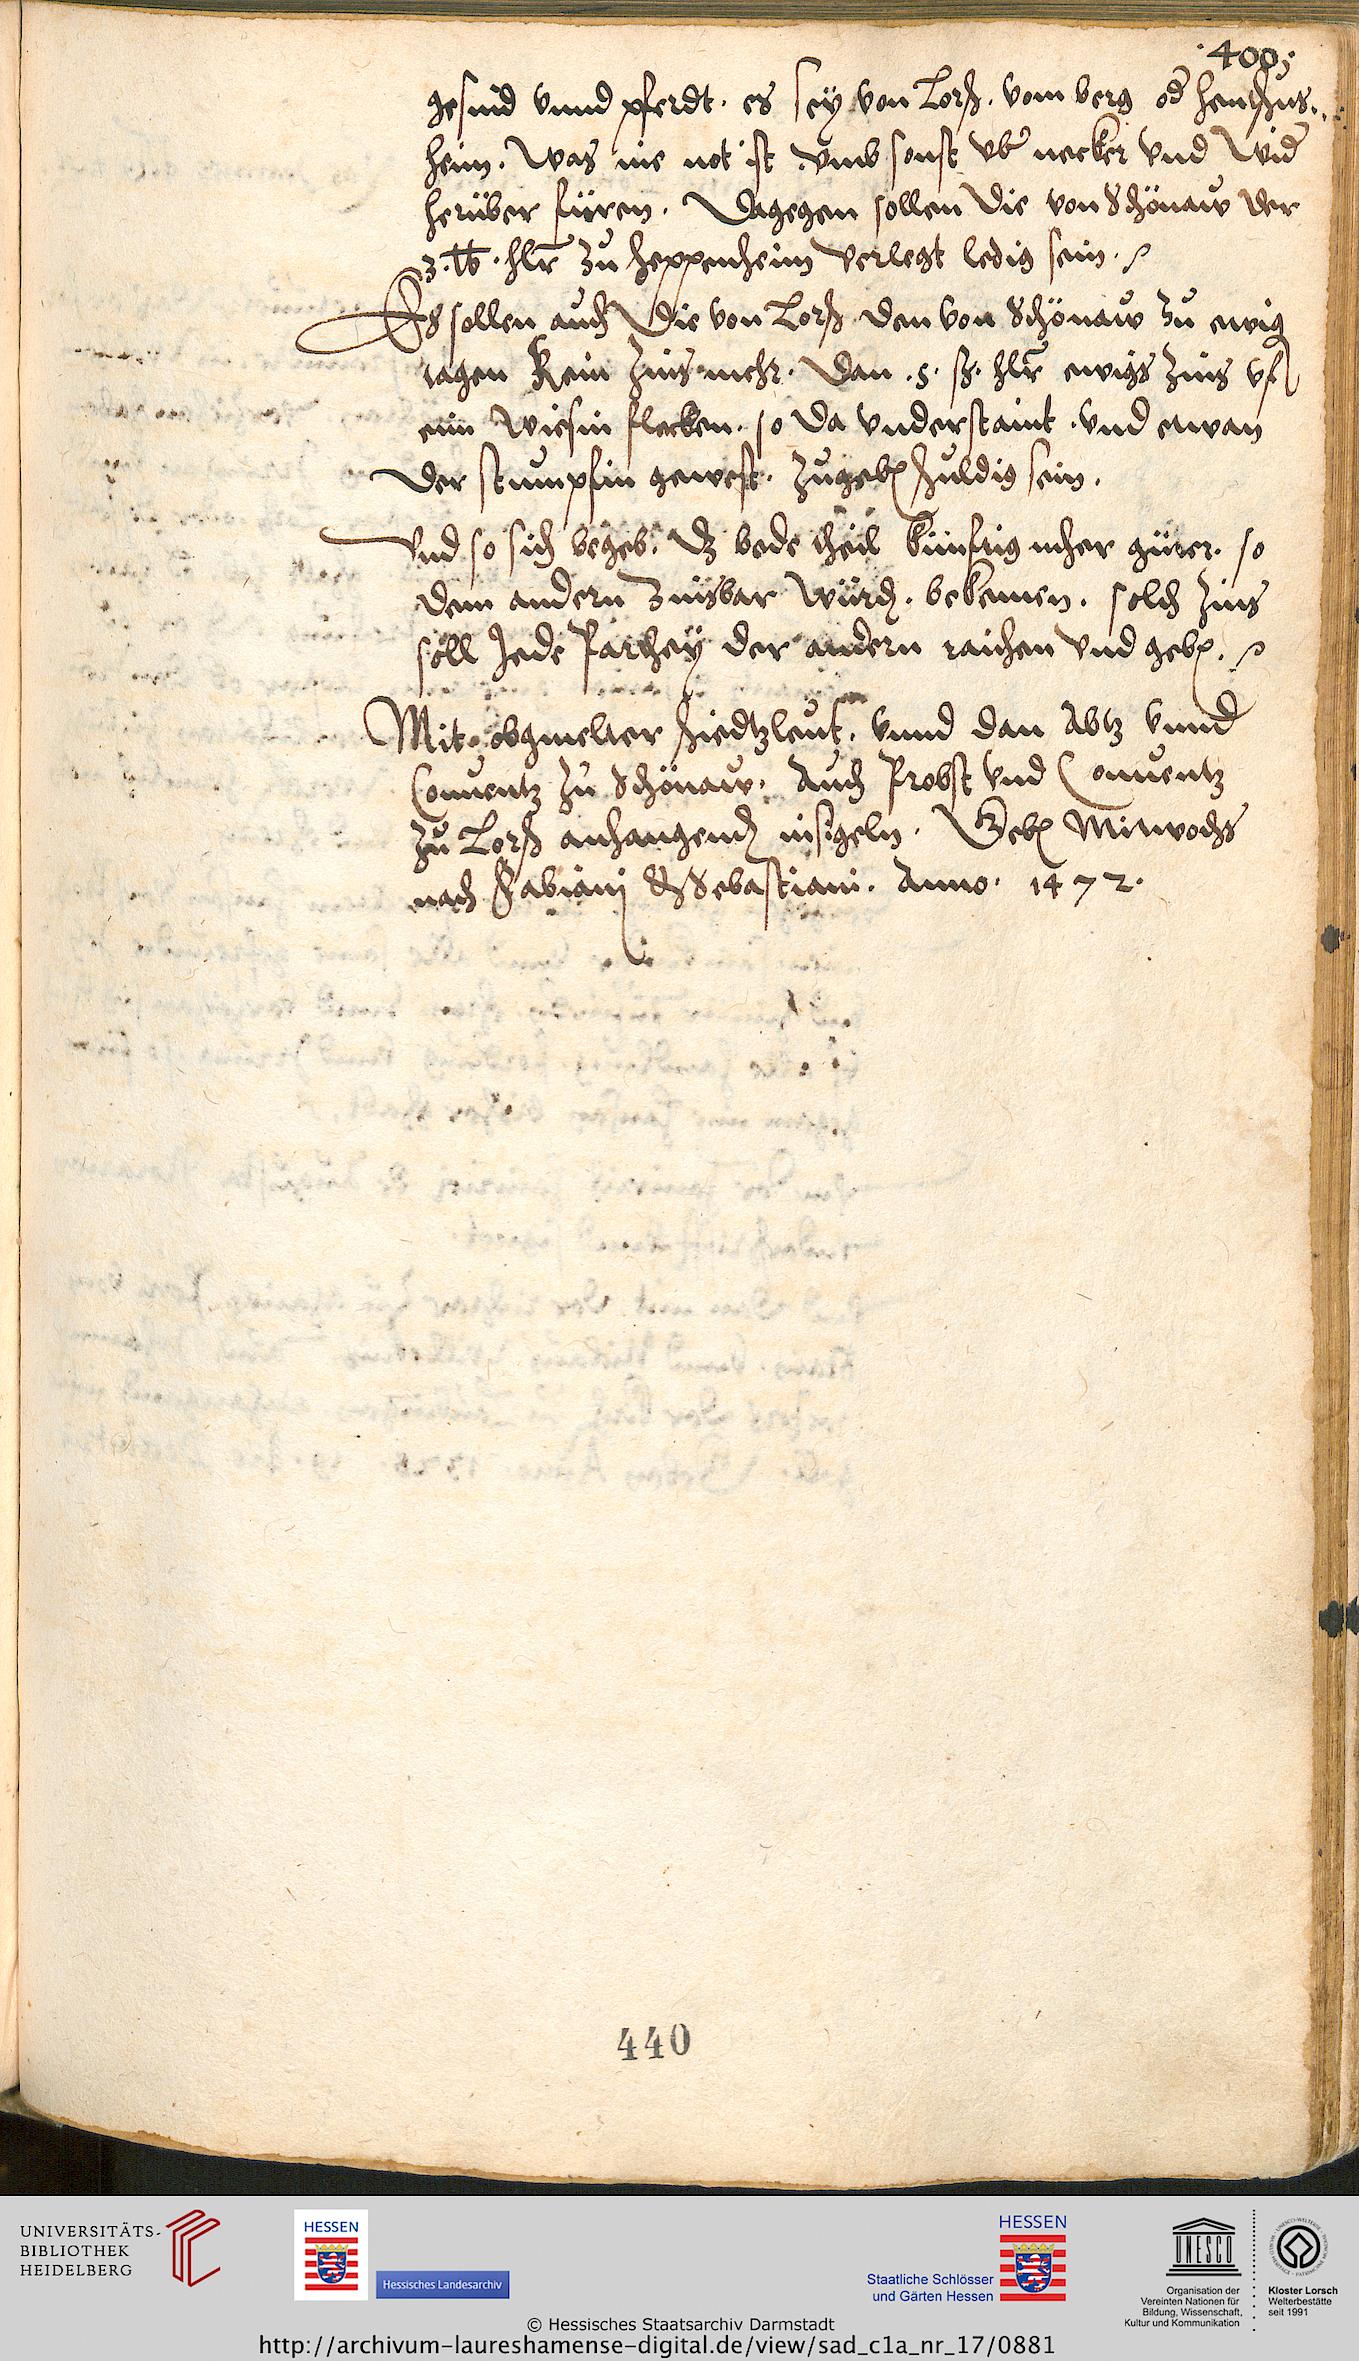 .400;
gesind vnnd pferdt. es sey von Lorß. vom berg od hentschus.
heim. Was nie not ist vmb sonst vber necker vnd Wid
herüber füren. Dagegen sollen die von Schönaw der
3. lb. hlr zu heppenheim verlegt ledig sein.
Es sollen auch die von Lorß den von Schönaw zu ewig
tagen Kein Zins mehr. dan .5. ß. hlr ewigs Zins vf
ein Wiesin flecken. so da vnderstaint. vnd etwan
der stumpfin gewest. zugeb schuldig sein.
Vnd so sich begeb. dz bede theil künftig güter. so
dem andern Zinsbar würd. bekemen. solch Zins
söll Jede Parthey der andern raichen vnd geb.
Mit obgmelter schiedtzleut. vnnd dan Abtz vnnd
Conuentz zu Schönaw. Auch Probst vnd Conuentz
zu Lorß anhangend insigeln. Geb Mitwochs
nach Fabiani & Sebastiani. Anno. 1472.
440
UNIVERSITÄTS-
BIBLIOTHEK
HEIDELBERG
HESSEN
Hessisches Landesarchiv
HESSEN
Staatliche Schlösser
und Gärten Hessen
UNESCO
Organisation der
Vereinten Nationen für
Bildung, Wissenschaft,
Kultur und Kommunikation
Kloster Lorsch
Welterbestätte
seit 1991
© Hessisches Staatsarchiv Darmstadt
http://archivum-laureshamense-digital.de/view/sad_c1a_nr_17/0881